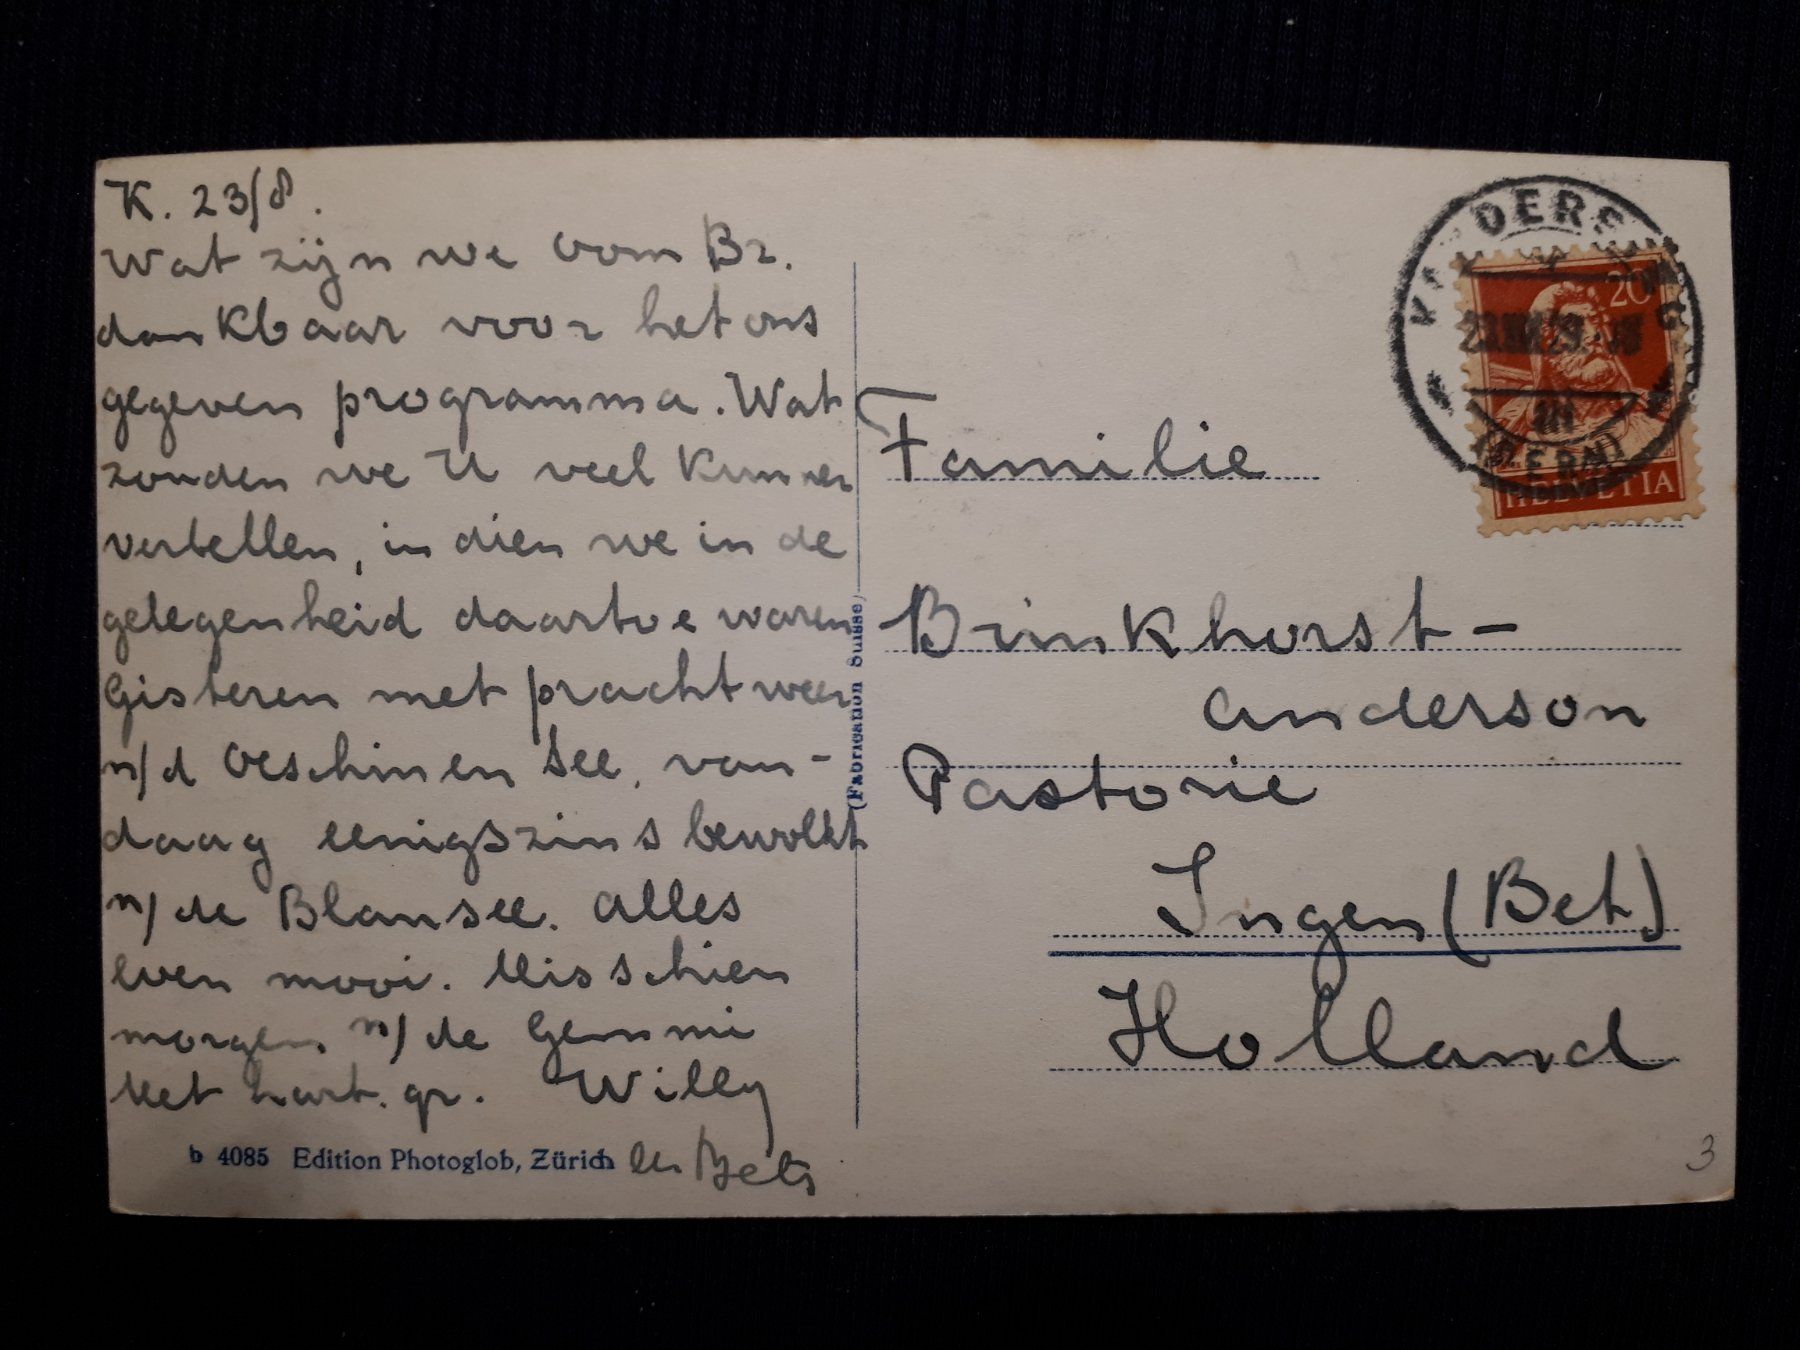 K. 23/8.
Wat zijn we Oom Br.
dankbaar voor het ons
gegeven programma. Wat
zouden we U veel kunnen
vertellen, in dien we in de
gelegenheid daartoe waren
Gisteren met prachtweer
n/d Oeschinen See, van-
daag eenigszins bewolkt
n/ de Blausee. Alles
even mooi. Misschien
morgen n/ de Gemmi
Met hart. gr. Willy
en Bets
b 4085 Edition Photoglob, Zürich
(Fabrication Suisse)
20
23.VIII.29.
(BERN)
HELVETIA
Familie
Brinkhorst-
Anderson
Pastorie
Ingen (Bet)
Holland
3